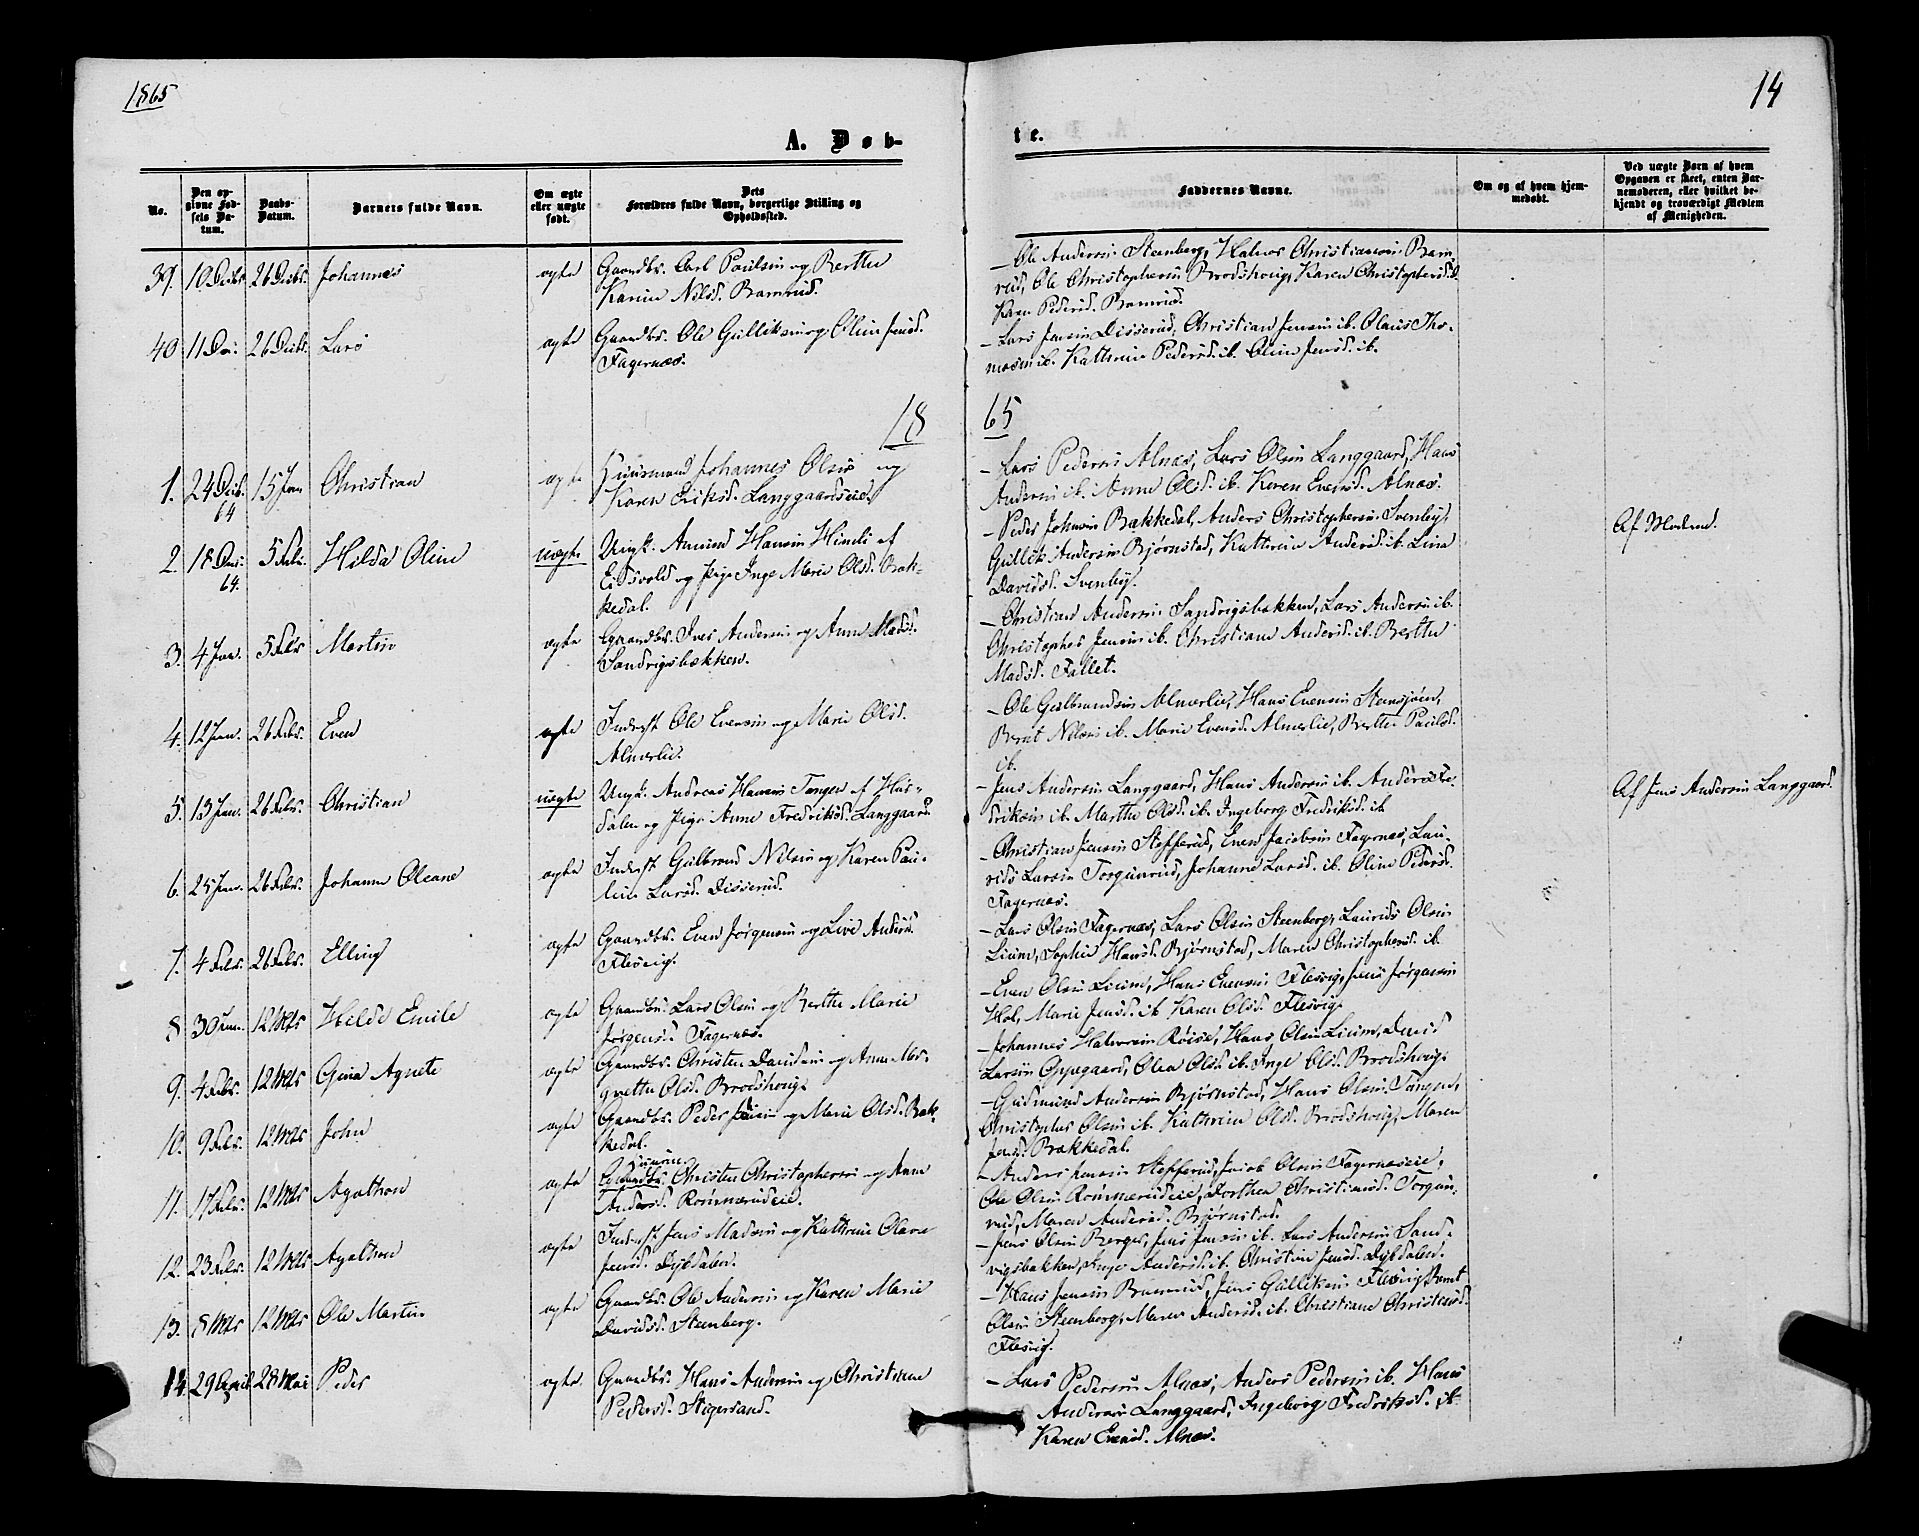 1865
14
A. Døb-
te.
No.
Den op-
givne Fød-
sels Da-
tum.
Daabs-
Datum.
Barnets fulde Navn.
Om ægte
eller uægte
født.
Dets
Forældres fulde Navn, borgerlige Stilling og
Opholdssted.
Faddernes Navne.
Om og af hvem hjem-
medøbt.
Ved uægte Børn af hvem
Opgaven er skeet, enten Bar-
nemoderen, eller hvilket be-
kjendt og troværdigt Medlem
af Menigheden.
39. 10 Decbr 26 Decbr. Johannes ægte Gaardbr. Carl Paulsen og Berthe
Karine Nilsd. Bamrud.
- Ole Andersen Steenberg, Halvor Christiansen Bam-
rud, Ole Christophersen Brodshoug, Karen Christophersd.
Karen Pedersd. Bamrud.
40 11 Dec: 26 Decbr. Lars ægte Gaardbr. Ole Gulliksen og Oline Jensd.
Fagernæs.
- Lars Jensen Disserud, Christian Jensen ib. Olaus Tho-
masen ib. Kathrine Pedersd. ib. Oline Jensd. ib.
18
65
1. 24 Decb. 15 Jan Christian ægte Huusmand Johannes Olsen og
64
Karen Eriksd. Langgaardseie.
- Lars Pedersen Alnæs, Lars Olsen Langgaard, Hans
Andersen ib. Anne Olsd. ib. Karen Evensd. Alnæs.
2. 18 Dec: 5 Febr. Hilda Oline uægte Ungk. Amund Hansen Himle af
64.
Eidsvold og Pige Inge Marie Olsd. Bak-
kedal.
- Peder Johnsen Bakkedal, Anders Christophersen Svenby,
Gullik Andersen Bjørnstad, Kathrine Andersd. ib. Lina
Davidsd. Svenby.
Af Moderen.
3. 4 Jan. 5 Febr Martin ægte Gaardbr. Iver Andersen og Anne Madsd.
Sandvigsbakken.
- Christian Andersen Sandvigsbakken, Lars Andersen ib.
Christopher Jensen ib. Christiane Andersd. ib. Berthe
Madsd. Fallet.
4. 12 Jan. 26 Febr. Even ægte Inderst Ole Evensen og Marie Olsd.
Almerlie.
- Ole Gulbrandsen Almerlie, Hans Evensen Steensjøen,
Bernt Nilsen ib. Marie Evensd. Almerlie, Berthe Paulsd.
ib.
5. 13 Jan. 26 Febr. Christian uægte Ungk. Andreas Hansen Tangen af Hur-
dalen og Pige Anne Fredriksd. Langgaard.
- Jens Andersen Langgaard, Hans Andersen ib. Anders Fre-
driksen ib. Marthe Olsd. ib. Ingeborg Fredriksd. ib
Af Jens Andersen Langgaard.
6. 25 Jan. 26 Febr. Johanne Oleane ægte Inderst Gulbrand Nilsen og Karen Pau-
line Larsd. Disserud.
- Christian Jensen Stefferud, Even Jacobsen Fagernæs, Lau-
rids Larsen Torgunrud, Johanne Larsd. ib. Oline Pedersd.
Fagernæs.
7. 4 Febr. 26 Febr. Elling ægte Gaardbr. Even Jørgensen og Live Andersd.
Flesvig.
- Lars Olsen Fagernæs, Lars Olsen Steenberg, Laurids Olsen
Lium, Sophie Hansd. Bjørnstad, Maren Christophersd. ib.
8 30 Jan. 12 Mts Hilde Emile ægte Gaardbr: Lars Olsen og Berthe Marie
Jørgensd. Fagernæs.
- Even Olsen Lium, Hans Evensen Flesvig, Jens Jørgensen
Hol, Marie Jensd. ib Karen Olsd. Flesvig.
9. 4 Febr. 12 Mts Gina Agnete ægte Gaardbr. Christen Davidsen og Anne Mar-
grethe Olsd. Brodshoug.
- Johannes Halvorsen Røise, Hans Olsen Lium, David
Larsen Oppegaard, Olea Olsd. ib. Inge Olsd. Brodshoug.
10. 9 Febr. 12 Mts John ægte Gaardbr. Peder Jensen og Marie Olsd. Bak-
kedal.
- Gudmund Andersen Bjørnstad, Hans Olsen Tangen,
Christopher Olsen ib. Kathrine Olsd. Brodshoug, Maren
Jensd. Bakkedal.
11. 17 Febr. 12 Mts Agathon ægte Gaardbr. Christen Christophersen og Anne
Andersd. Rommerudeie.
- Anders Jensen Stefferud, Jacob Olsen Fagernæseie,
Ole Olsen Rommerudeie, Dorthea Christiansd. Torgun-
rud, Maren Andersd. Bjørnstad.
12. 23 Febr. 12 Mts Agathon ægte Inderst Jens Madsen og Kathrine Olava
Jensd. Dybdalen.
- Jens Olsen Berger, Jens Jensen ib. Lars Andersen Sand-
vigsbakken, Inge Andersd. ib. Christine Jensd. Dybdalen.
13. 8 Mts 12 Mts Ole Martin ægte Gaardbr. Ole Andersen og Karen Marie
Davidsd. Steenberg.
- Hans Jensen Bamrud, Jens Gulliksen Flesvig, Bernt
Olsen Steenberg, Maren Andersd. ib. Christiane Christensd.
Flesvig.
14 29 April 28 Mai Peder ægte Gaardbr. Hans Andersen og Christiane
Pedersd. Stigersand.
- Lars Pedersen Alnæs, Anders Pedersen ib. Hans
Andersen Langgaard, Ingeborg Fredriksd. ib
Karen Evensd. Alnæs.